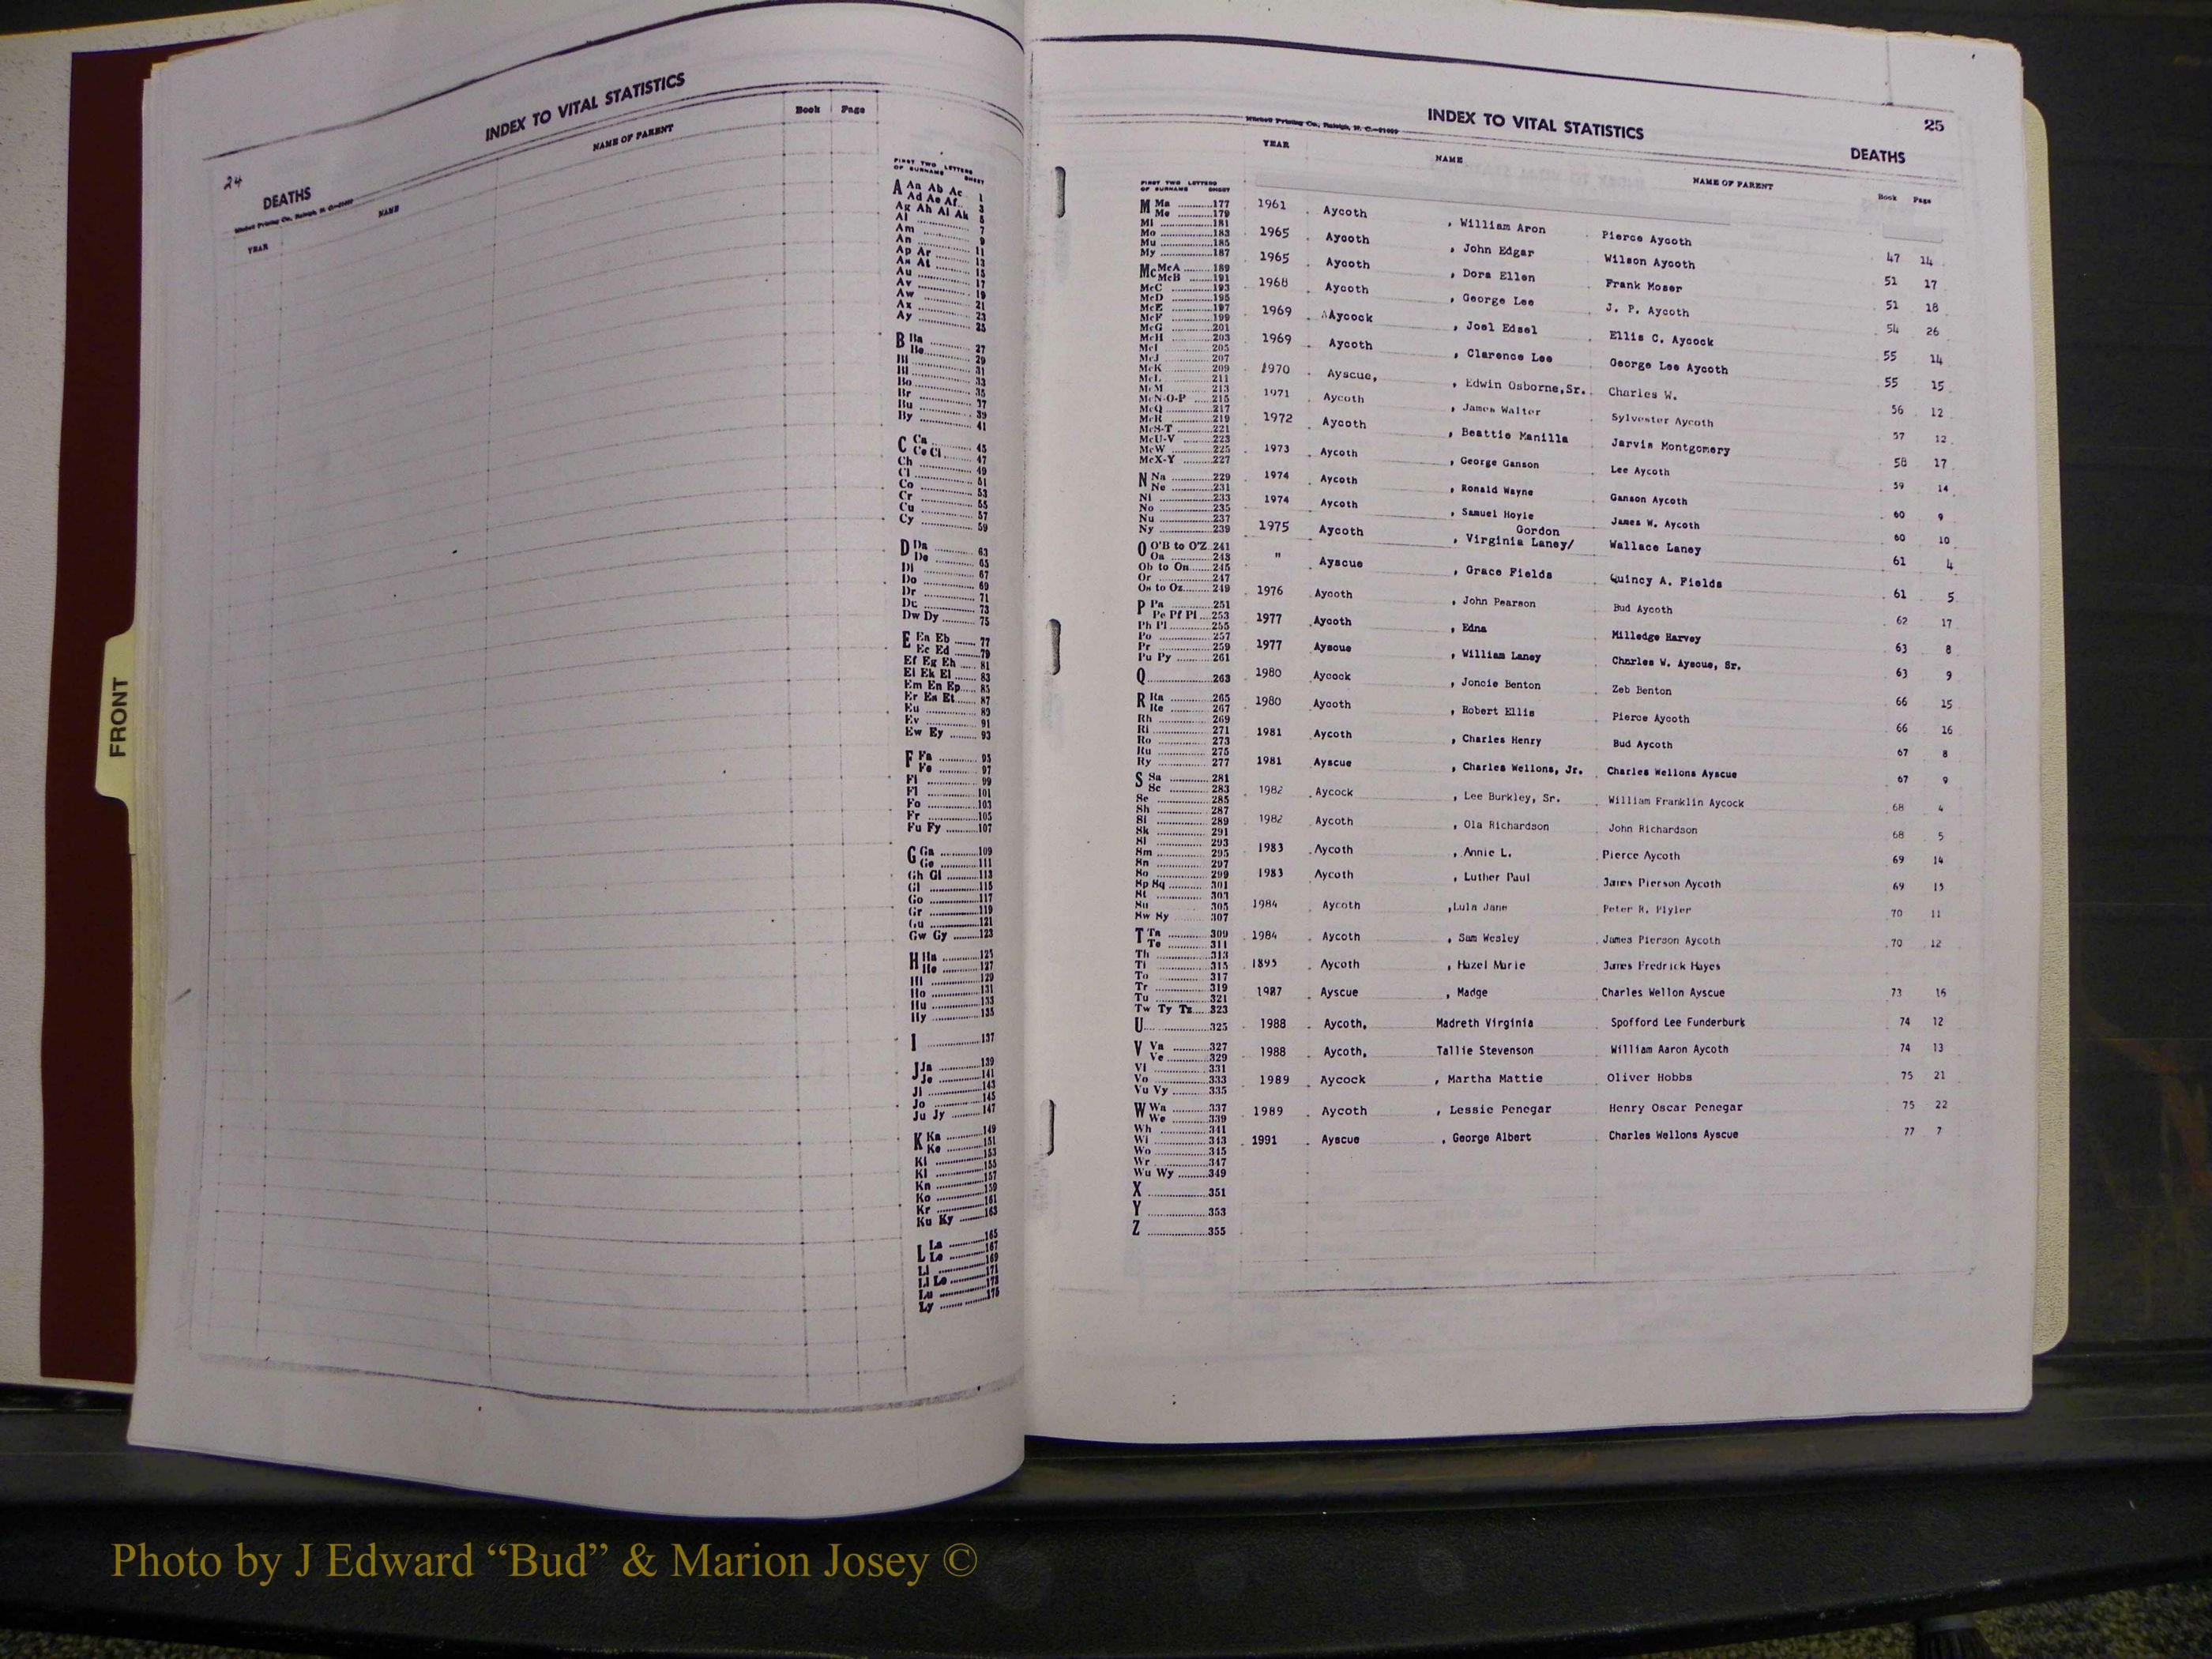 24
INDEX TO VITAL STATISTICS
DEATHS
Mitchell Printing Co., Raleigh, N. C.
YEAR NAME NAME OF PARENT Book Page
FIRST TWO LETTERS
OF SURNAME SHEET
A Aa Ab Ac 1
Ad Ae Af 3
Ag Ah Ai Ak 5
Al 7
Am 9
An 11
Ap Ar 13
As At 15
Au 17
Av 19
Aw 21
Ax 23
Ay 25
B Ba 27
Be 29
Bi 31
Bl 33
Bo 35
Br 37
Bu 39
By 41
C Ca 45
Ce Ci 47
Ch 49
Cl 51
Co 53
Cr 55
Cu 57
Cy 59
D Da 63
De 65
Di 67
Do 69
Dr 71
Du 73
Dw Dy 75
E Ea Eb 77
Ec Ed 79
Ef Eg Eh 81
Ei Ek El 83
Em En Ep 85
Er Es Et 87
Eu 89
Ev 91
Ew Ey 93
F Fa 95
Fe 97
Fi 99
Fl 101
Fo 103
Fr 105
Fu Fy 107
G Ga 109
Ge 111
Gh Gi 113
Gl 115
Go 117
Gr 119
Gu 121
Gw Gy 123
H Ha 125
He 127
Hi 129
Ho 131
Hu 133
Hy 135
I 137
J Ja 139
Je 141
Ji 143
Jo 145
Ju Jy 147
K Ka 149
Ke 151
Ki 153
Kl 155
Kn 157
Ko 159
Kr 161
Ku Ky 163
L La 165
Le 167
Li 169
Ll Lo 171
Lu 173
Ly 175
FRONT
25
INDEX TO VITAL STATISTICS
DEATHS
Mitchell Printing Co., Raleigh, N. C.
YEAR NAME NAME OF PARENT Book Page
FIRST TWO LETTERS
OF SURNAME SHEET
M Ma 177
Me 179
Mi 181
Mo 183
Mu 185
My 187
Mc McA 189
McB 191
McC 193
McD 195
McE 197
McF 199
McG 201
McH 203
McI 205
McJ 207
McK 209
McL 211
McM 213
McN-O-P 215
McQ 217
McR 219
McS-T 221
McU-V 223
McW 225
McX-Y 227
N Na 229
Ne 231
Ni 233
No 235
Nu 237
Ny 239
O O'B to O'Z 241
Oa 243
Ob to On 245
Or 247
Os to Oz 249
P Pa 251
Pe Pf Pi 253
Ph Pl 255
Po 257
Pr 259
Pu Py 261
Q 263
R Ra 265
Re 267
Rh 269
Ri 271
Ro 273
Ru 275
Ry 277
S Sa 281
Sc 283
Se 285
Sh 287
Si 289
Sk 291
Sl 293
Sm 295
Sn 297
So 299
Sp Sq 301
St 303
Su 305
Sw Sy 307
T Ta 309
Te 311
Th 313
Ti 315
To 317
Tr 319
Tu 321
Tw Ty Tz 323
U 325
V Va 327
Ve 329
Vi 331
Vo 333
Vu Vy 335
W Wa 337
We 339
Wh 341
Wi 343
Wo 345
Wr 347
Wu Wy 349
X 351
Y 353
Z 355
1961 Aycoth , William Aron Pierce Aycoth 47 14
1965 Aycoth , John Edgar Wilson Aycoth 51 17
1965 Aycoth , Dora Ellen Frank Moser 51 18
1968 Aycoth , George Lee J. P. Aycoth 54 26
1969 AAycock , Joel Edsel Ellis C. Aycock 55 14
1969 Aycoth , Clarence Lee George Lee Aycoth 55 15
1970 Ayscue, , Edwin Osborne,Sr. Charles W. 56 12
1971 Aycoth , James Walter Sylvester Aycoth 57 12
1972 Aycoth , Beattie Manilla Jarvis Montgomery 58 17
1973 Aycoth , George Ganson Lee Aycoth 59 14
1974 Aycoth , Ronald Wayne Ganson Aycoth 60 9
1974 Aycoth , Samuel Hoyle James W. Aycoth 60 10
1975 Aycoth , Virginia Laney/ Gordon Wallace Laney 61 4
" Ayscue , Grace Fields Quincy A. Fields 61 5
1976 Aycoth , John Pearson Bud Aycoth 62 17
1977 Aycoth , Edna Milledge Harvey 63 8
1977 Ayscue , William Laney Charles W. Ayscue, Sr. 63 9
1980 Aycock , Joncie Benton Zeb Benton 66 15
1980 Aycoth , Robert Ellis Pierce Aycoth 66 16
1981 Aycoth , Charles Henry Bud Aycoth 67 8
1981 Ayscue , Charles Wellons, Jr. Charles Wellons Ayscue 67 9
1982 Aycock , Lee Burkley, Sr. William Franklin Aycock 68 4
1982 Aycoth , Ola Richardson John Richardson 68 5
1983 Aycoth , Annie L. Pierce Aycoth 69 14
1983 Aycoth , Luther Paul James Pierson Aycoth 69 15
1984 Aycoth ,Lula Jane Peter R. Plyler 70 11
1984 Aycoth , Sam Wesley James Pierson Aycoth 70 12
1895 Aycoth , Hazel Marie James Fredrick Hayes
1987 Ayscue , Madge Charles Wellon Ayscue 73 16
1988 Aycoth, Madreth Virginia Spofford Lee Funderburk 74 12
1988 Aycoth, Tallie Stevenson William Aaron Aycoth 74 13
1989 Aycock , Martha Mattie Oliver Hobbs 75 21
1989 Aycoth , Lessie Penegar Henry Oscar Penegar 75 22
1991 Ayscue , George Albert Charles Wellons Ayscue 77 7
Photo by J Edward “Bud” & Marion Josey ©